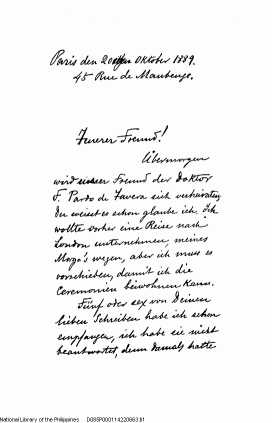 Paris den 20ten Oktober 1889.
45 Rue de Maubeuge.
Teuerer Freund!
Übermorgen
wird unser Freund der Doktor
F. Pardo de Tavera sich verheiraten
Du weisst es schon glaube ich. Ich
wollte vorher eine Reise nach
London unternehmen, meines
Morga's wegen, aber ich muss es
verschieben, damit ich die
Ceremonien beiwohnen kann.
Fünf oder sex von Deinen
lieben Schreiben habe ich schon
empfangen, ich habe sie nicht
beantwortet, denn damals hatte
National Library of the Philippines